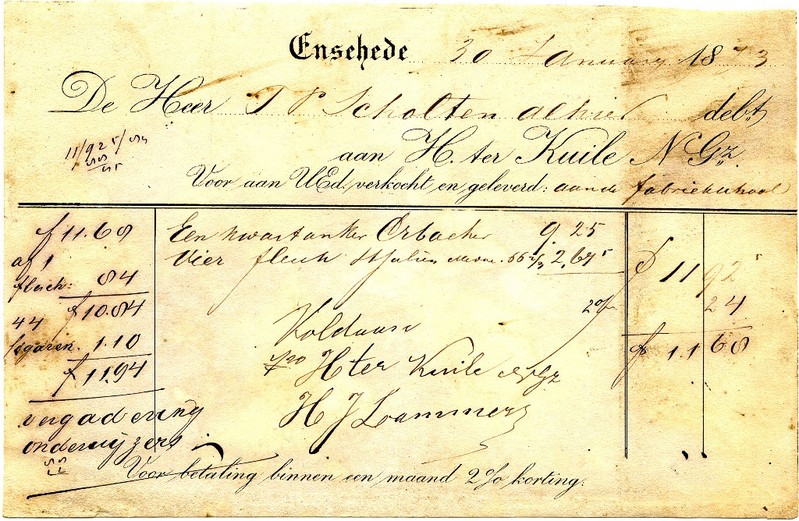 Enschede 30 January 1873
De Heer T P Scholten debt
aan H. ter Kuile N Gz.
Voor aan UEd. verkocht en geleverd: aan de fabriekschool
Een kwartanker 9 25
Vier flesch St Julien 2,67 5
f 11 92 5
2% 24
f 11 68
Voldaan
H ter Kuile N Gz
H J Lammers
f 11.68
af 1
flesch: 84
f 10.84
44
sigaren. 1.10
f 11.94
vergadering
onderwijzers
Voor betaling binnen een maand 2% korting.